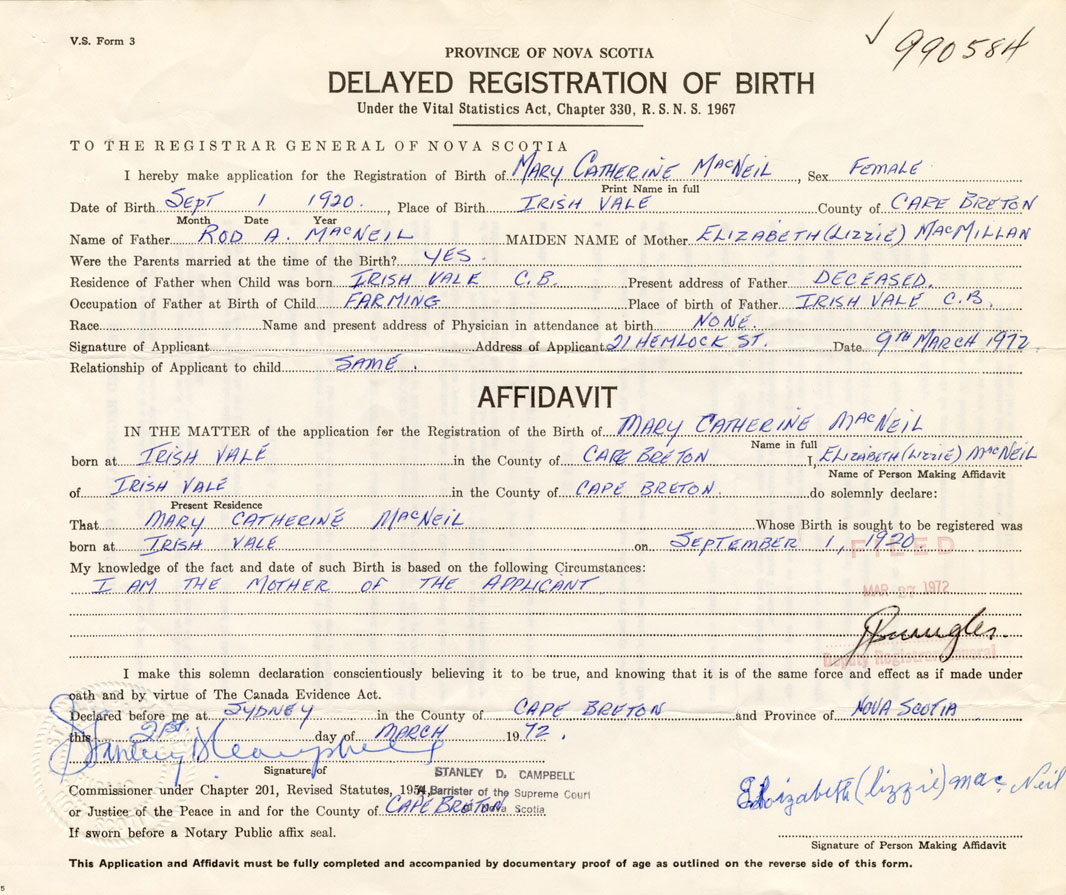 V.S. Form 3
990584
PROVINCE OF NOVA SCOTIA
DELAYED REGISTRATION OF BIRTH
Under the Vital Statistics Act, Chapter 330, R. S. N. S. 1967
TO THE REGISTRAR GENERAL OF NOVA SCOTIA
I hereby make application for the Registration of Birth of MARY CATHERINE MACNEIL, Sex FEMALE
Print Name in full
Date of Birth SEPT 1 1920, Place of Birth IRISH VALE County of CAPE BRETON
Month Date Year
Name of Father ROD A. MACNEIL MAIDEN NAME of Mother ELIZABETH (LIZZIE) MACMILLAN
Were the Parents married at the time of the Birth? YES.
Residence of Father when Child was born IRISH VALE C.B. Present address of Father DECEASED.
Occupation of Father at Birth of Child FARMING Place of birth of Father IRISH VALE C.B.
Race Name and present address of Physician in attendance at birth NONE.
Signature of Applicant Address of Applicant 21 HEMLOCK ST. Date 9TH MARCH 1972
Relationship of Applicant to child SAME.
AFFIDAVIT
IN THE MATTER of the application for the Registration of the Birth of MARY CATHERINE MACNEIL
Name in full
born at IRISH VALE in the County of CAPE BRETON I, ELIZABETH (LIZZIE) MACNEIL
Name of Person Making Affidavit
of IRISH VALE in the County of CAPE BRETON. do solemnly declare:
Present Residence
That MARY CATHERINE MACNEIL Whose Birth is sought to be registered was
born at IRISH VALE on SEPTEMBER 1, 1920
FILED
My knowledge of the fact and date of such Birth is based on the following Circumstances:
I AM THE MOTHER OF THE APPLICANT
MAR 27 1972
Deputy Registrar General
I make this solemn declaration conscientiously believing it to be true, and knowing that it is of the same force and effect as if made under
oath and by virtue of The Canada Evidence Act.
Declared before me at SYDNEY in the County of CAPE BRETON and Province of NOVA SCOTIA
this 21st. day of MARCH 1972.
Stanley D Campbell
Signature of
STANLEY D. CAMPBELL
Commissioner under Chapter 201, Revised Statutes, 1954, Barrister of the Supreme Court
or Justice of the Peace in and for the County of CAPE BRETON of Nova Scotia
Elizabeth (lizzie) mac Neil
If sworn before a Notary Public affix seal.
Signature of Person Making Affidavit
This Application and Affidavit must be fully completed and accompanied by documentary proof of age as outlined on the reverse side of this form.